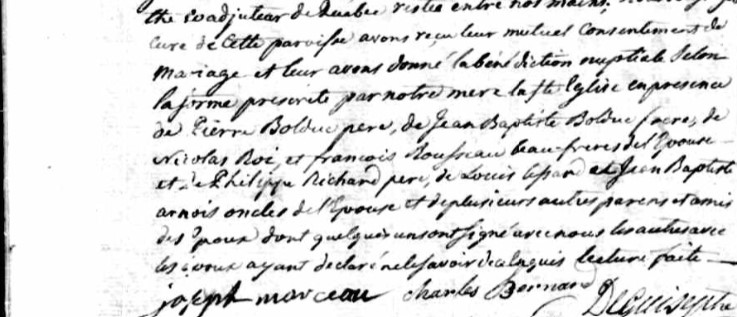 the Coadjuteur de Quebec restée entre nos mains,
curé de Cette paroisse avons reçu leur mutuel Consentement de
Mariage et leur avons donné la bénédiction nuptiale Selon
la forme prescrite par notre mere la Ste Eglise en presence
de Pierre Bolduc pere, de Jean Baptiste Bolduc frere, de
Nicolas Roi, et francois Rousseau beau-freres de l'Epouse
et de Philippe Richard pere, de Louis et Jean Baptiste
arnois oncles de l'Epouse et de plusieurs autres parens et amis
des Epoux dont quelques uns ont signé avec nous les autres avec
les époux ayant declaré ne le savoir de ce enquis lecture faite
joseph marceau charles Bernard